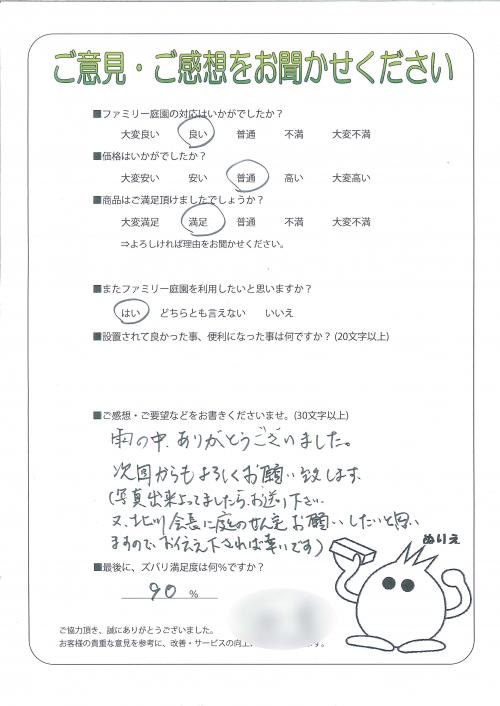 ご意見・ご感想をお聞かせください
■ファミリー庭園の対応はいかがでしたか？
大変良い 良い 普通 不満 大変不満
■価格はいかがでしたか？
大変安い 安い 普通 高い 大変高い
■商品はご満足頂けましたでしょうか？
大変満足 満足 普通 不満 大変不満
⇒よろしければ理由をお聞かせください。
■またファミリー庭園を利用したいと思いますか？
はい どちらとも言えない いいえ
■設置されて良かった事、便利になった事は何ですか？(20文字以上)
■ご感想・ご要望などをお書きくださいませ。(30文字以上)
雨の中、ありがとうございました。
次回からもよろしくお願い致します。
(写真出来上ってましたら、お送り下さい。
又、北川会長に庭のせん定お願いしたいと思い
ますので、お伝え下されば幸いです)
ぬりえ
■最後に、ズバリ満足度は何％ですか？
90 ％
ご協力頂き、誠にありがとうございました。
お客様の貴重な意見を参考に、改善・サービスの向上に
ます。